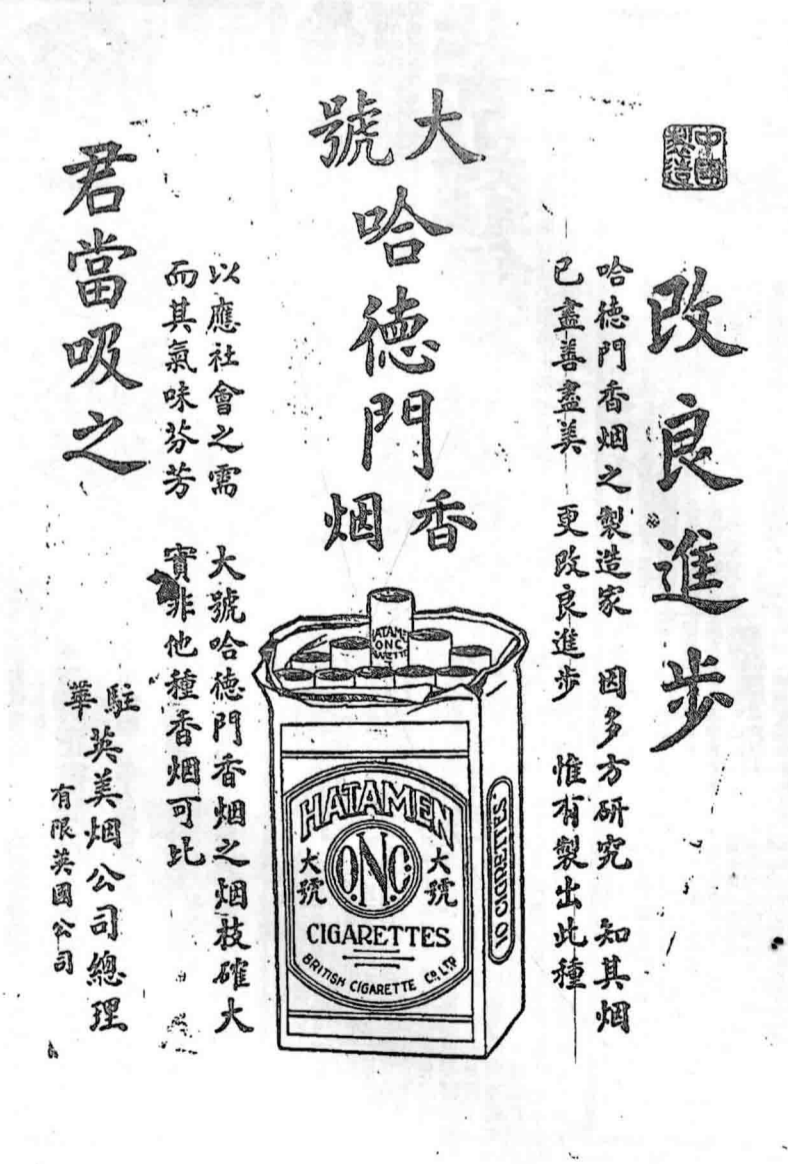 中國
製造
改良進步
哈德門香烟之製造家 因多方研究 知其烟
已盡善盡美 更改良進步 惟有製出此種
大號
哈德門
香烟
以應社會之需 大號哈德門香烟之烟枝確大
而其氣味芬芳 實非他種香烟可比
君當吸之
駐華英美烟公司總理
有限英國公司
HATAMEN
O.N.C.
CIGARETTES
HATAMEN
大號
O.N.C.
大號
CIGARETTES
BRITISH CIGARETTE CO. LTD
10 CIGARETTES